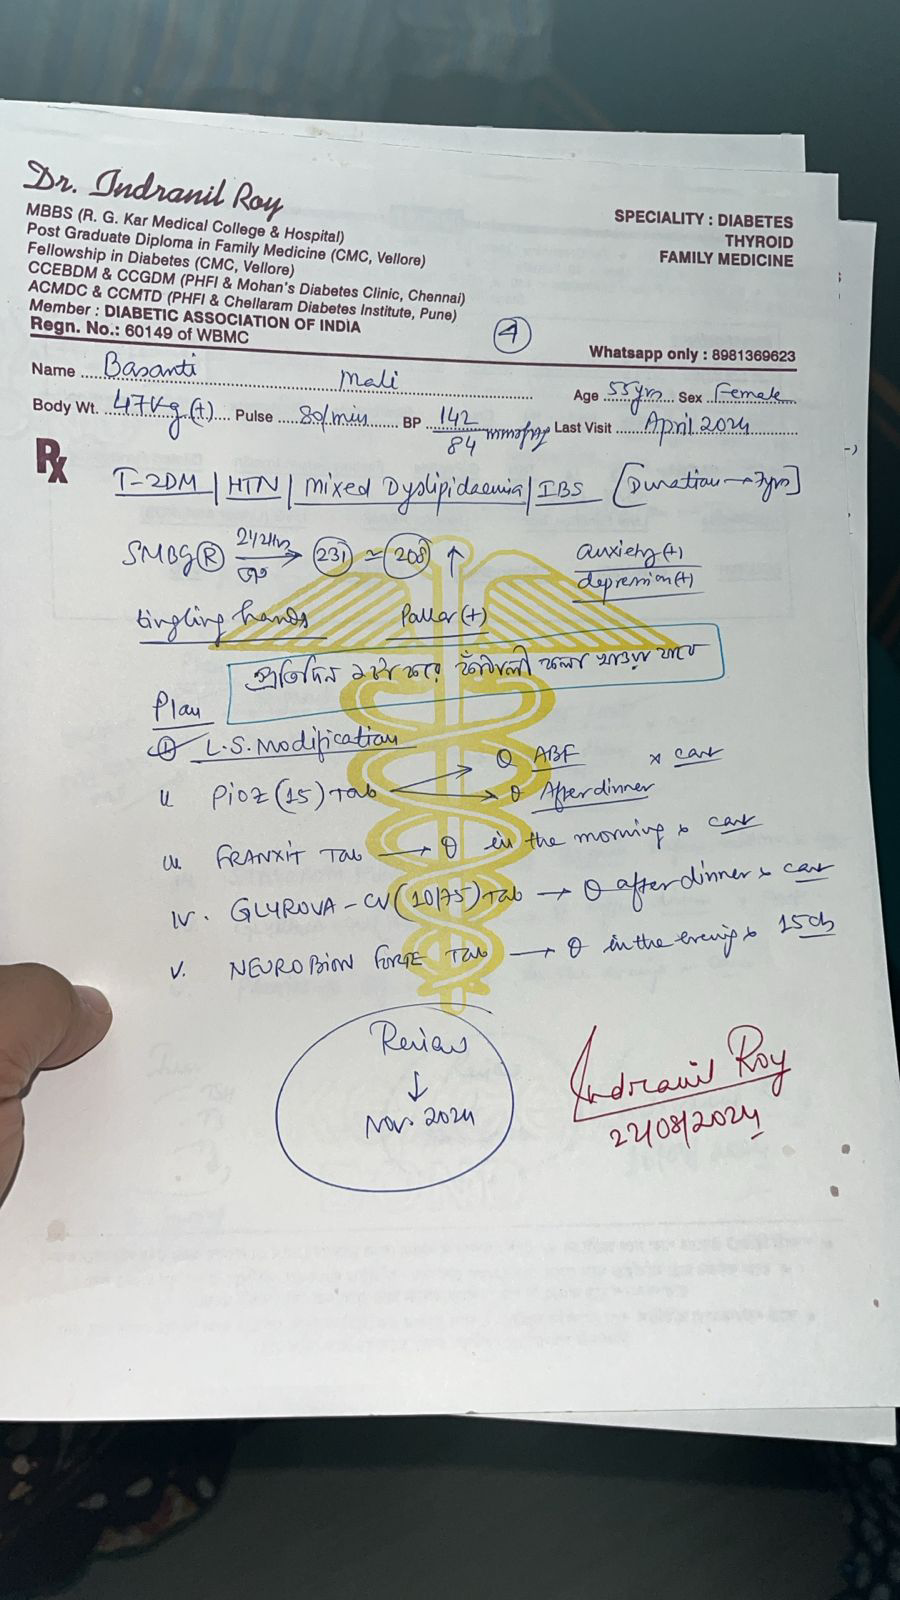 Dr. Indranil Roy
MBBS (R. G. Kar Medical College & Hospital)
Post Graduate Diploma in Family Medicine (CMC, Vellore)
Fellowship in Diabetes (CMC, Vellore)
CCEBDM & CCGDM (PHFI & Mohan's Diabetes Clinic, Chennai)
ACMDC & CCMTD (PHFI & Chellaram Diabetes Institute, Pune)
Member : DIABETIC ASSOCIATION OF INDIA
Regn. No.: 60149 of WBMC
SPECIALITY : DIABETES
THYROID
FAMILY MEDICINE
4
Whatsapp only : 8981369623
Name Basanti Mali Age 55yrs Sex Female
Body Wt. 47kg (+) Pulse 80/min BP 142/84 Last Visit April 2024
Rx
T-2DM | HTN | Mixed Dyslipidaemia | IBS [Duration → 7yrs]
SMBG (R) → 231 208 ↑
anxiety (+)
depression (+)
tingling hands Pallor (+)
প্রতিদিন করে কলা খাওয়া যাবে
Plan
L.S. Modification
ii Pioz (15) Tab ABF x cont
After dinner
iii FRANXIT Tab → in the morning x cont
iv. GLYROVA - CV (10/75) Tab → after dinner x cont
v. NEUROBION FORTE Tab → in the evening x 15d
Review
↓
Nov. 2024
Indranil Roy
22/08/2024